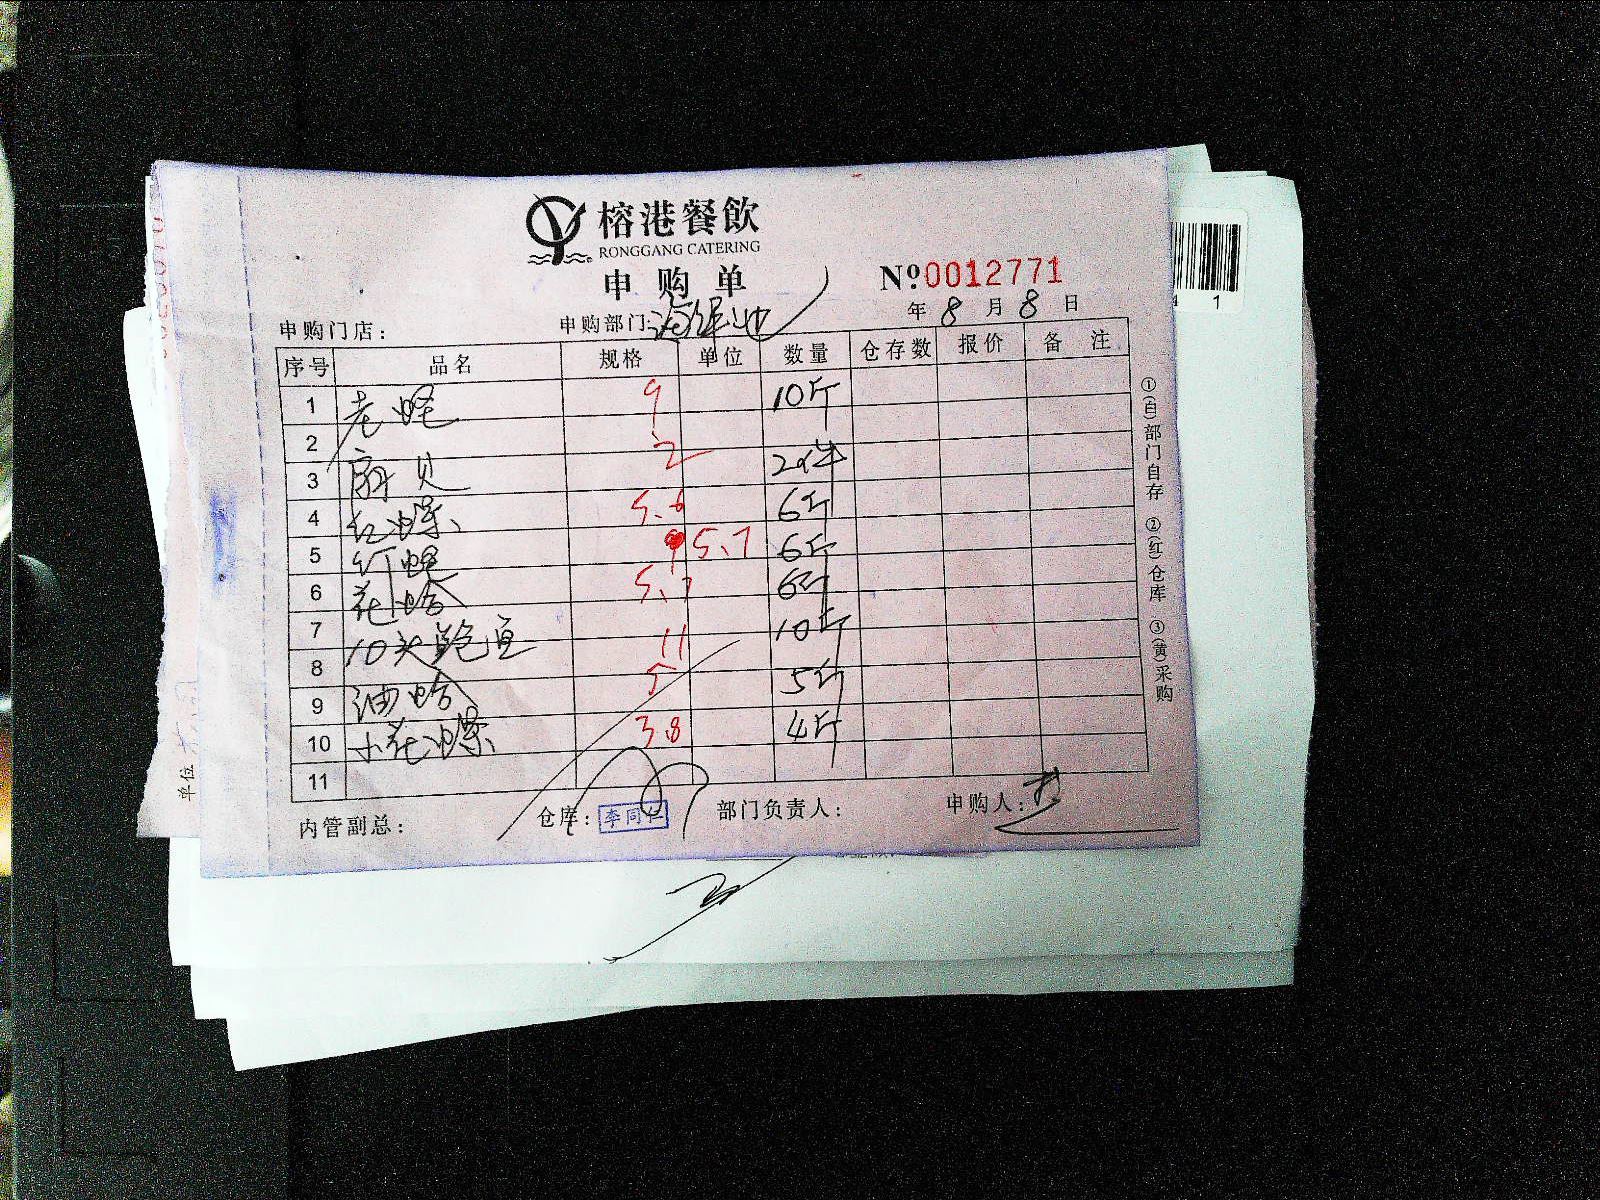 榕港餐飲
RONGGANG CATERING
申购单
№0012771
年 8 月 8 日
申购门店： 申购部门：海鲜池
序号 品名 规格 单位 数量 仓存数 报价 备注
1 老蛏 9 10斤
2
3 扇贝 2 20件
4 红螺 5.6 6斤
5 蛏 5.7 6斤
6 花蛤 5.7 6斤
7 10头鲍鱼 11 10斤
8
9 油蛤 5 5斤
10 小花螺 3.8 4斤
11
内管副总： 仓库：李同仁 部门负责人： 申购人：
①(白)部门自存 ②(红)仓库 ③(黄)采购
单位
4 1